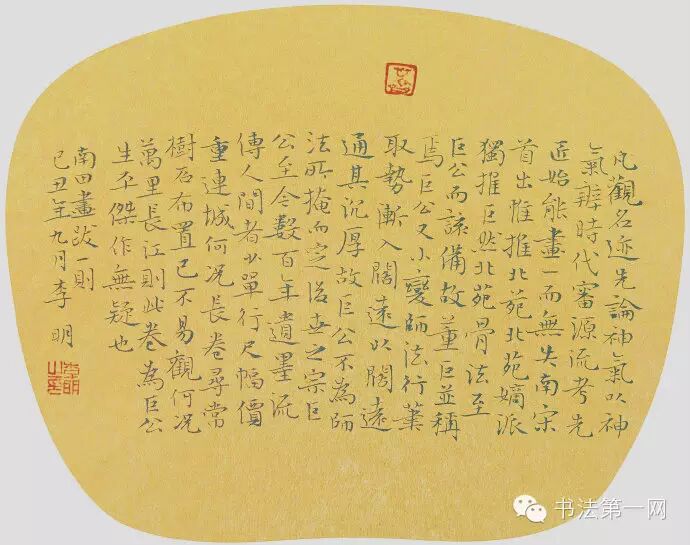 凡觀名迹先論神氣以神
氣辨時代審源流考先
匠始能畫一而無失南宋
首出惟推北苑北苑嫡派
獨推巨然北苑骨法至
巨公而該備故董巨並稱
焉巨公又小變師法行筆
取勢漸入闊遠以闊遠
通其沉厚故巨公不為師
法所掩而定後世之宗巨
公至今數百年遺墨流
傳人間者少單行尺幅價
重連城何況長卷尋常
樹石布置已不易觀何况
萬里長江則此卷為巨公
生平傑作無疑也
南田畫跋一則
己丑年九月李明
李明之印
书法第一网